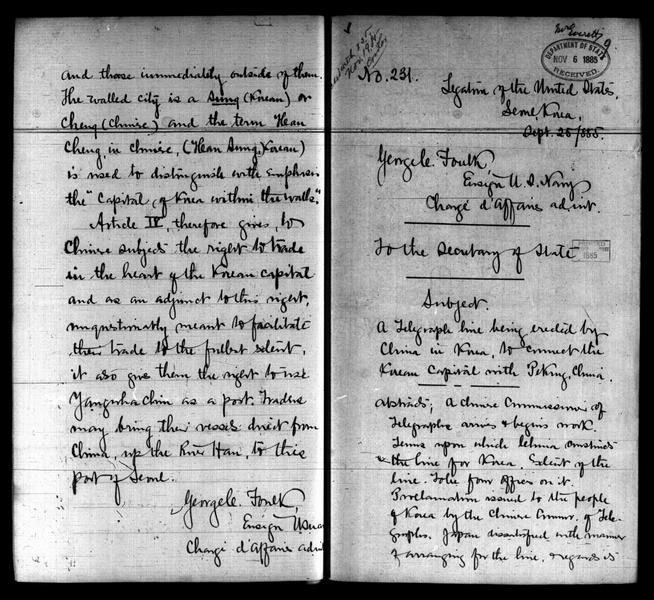 and those immediately outside of them.
The walled city is a Sung (Korean) or
Cheng (Chinese) and the term Hean
Cheng, in Chinese, (Hean Sung, Korean)
is used to distinguish with emphasis
the "Capital, of Korea within the walls".
Article IV, therefore gives, to
Chinese subjects the right to trade
in the heart of the Korean capital
and as an adjunct to this right,
unquestionably meant to facilitate
their trade to the fullest extent,
it also give them the right to use
Yanghwa Chin as a port. Traders
may bring their vessels direct from
China, up the River Han, to this
port of Seoul.
George C. Foulk,
Ensign U.S.
Chargé d'Affaires ad
No. 231.
DEPARTMENT OF STATE
NOV 6 1885
RECEIVED.
Legation of the United States,
Seoul Korea,
Sept. 25/1885.
George C. Foulk,
Ensign U.S. Navy
Chargé d'Affaires ad int.
To the Secretary of State
1885
Subject.
A Telegraph line being erected by
China in Korea, to connect the
Korean Capital with Peking, China.
Abstracts; A Chinese Commissioner of
Telegraphs arrives & begins work.
Terms upon which China constructs
the line for Korea. Extent of the
line. To be four offices on it.
Proclamation issued to the people
of Korea by the Chinese Commr. of Tele-
graphs. Japan dissatisfied with manner
of arranging for the line, & regards it